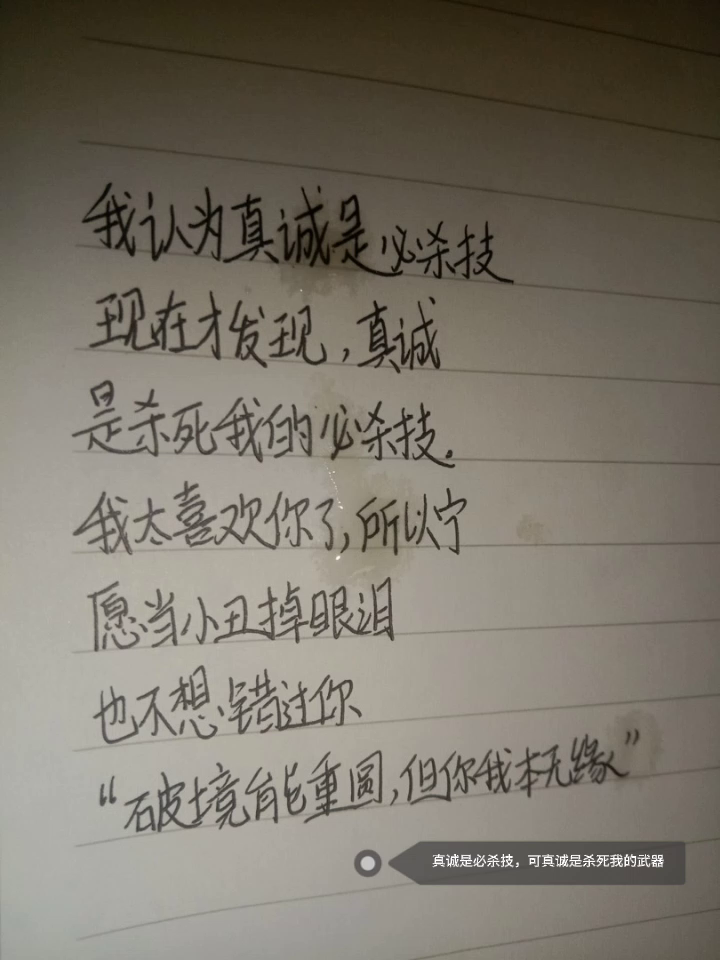 我认为真诚是必杀技
现在才发现，真诚
是杀死我的必杀技.
我太喜欢你了,所以宁
愿当小丑掉眼泪
也不想错过你
“破境能重圆,但你我本无缘”
真诚是必杀技，可真诚是杀死我的武器